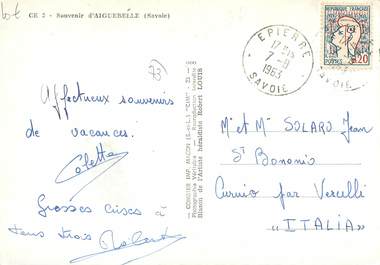 CE 2 - Souvenir d'AIGUEBELLE (Savoie)
73)
Affectueux souvenirs
de vacances.
Colette
Grosses bises à
tous trois Robert
COMBIER IMP. MACON (S.-et-L.) "CIM"
Photographie Véritable - Reproduction Interdite
Blason de l'Artiste héraldiste Robert LOUIS
EPIERRE
17 H
7-8
1963
SAVOIE
REPUBLIQUE FRANÇAISE
POSTES
0,20
SAVOIE
Mr et Me SOLARO Jean
St Bononio
Curino par Vercelli
"ITALIA"